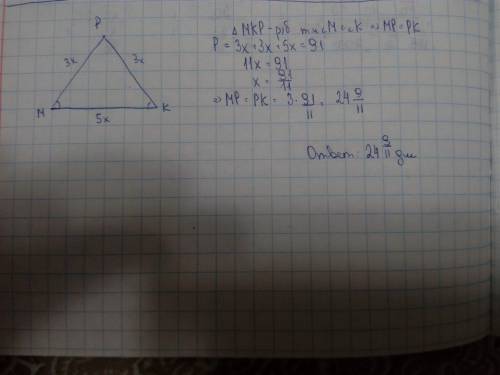 P
3x
3x
M
K
5x
△ MKP - р/б т.к ∠M = ∠K ⇒ MP = PK
P = 3x + 3x + 5x = 91
11x = 91
x = 91/11
⇒ MP = PK = 3 · 91/11 = 24 9/11
Ответ: 24 9/11 дм